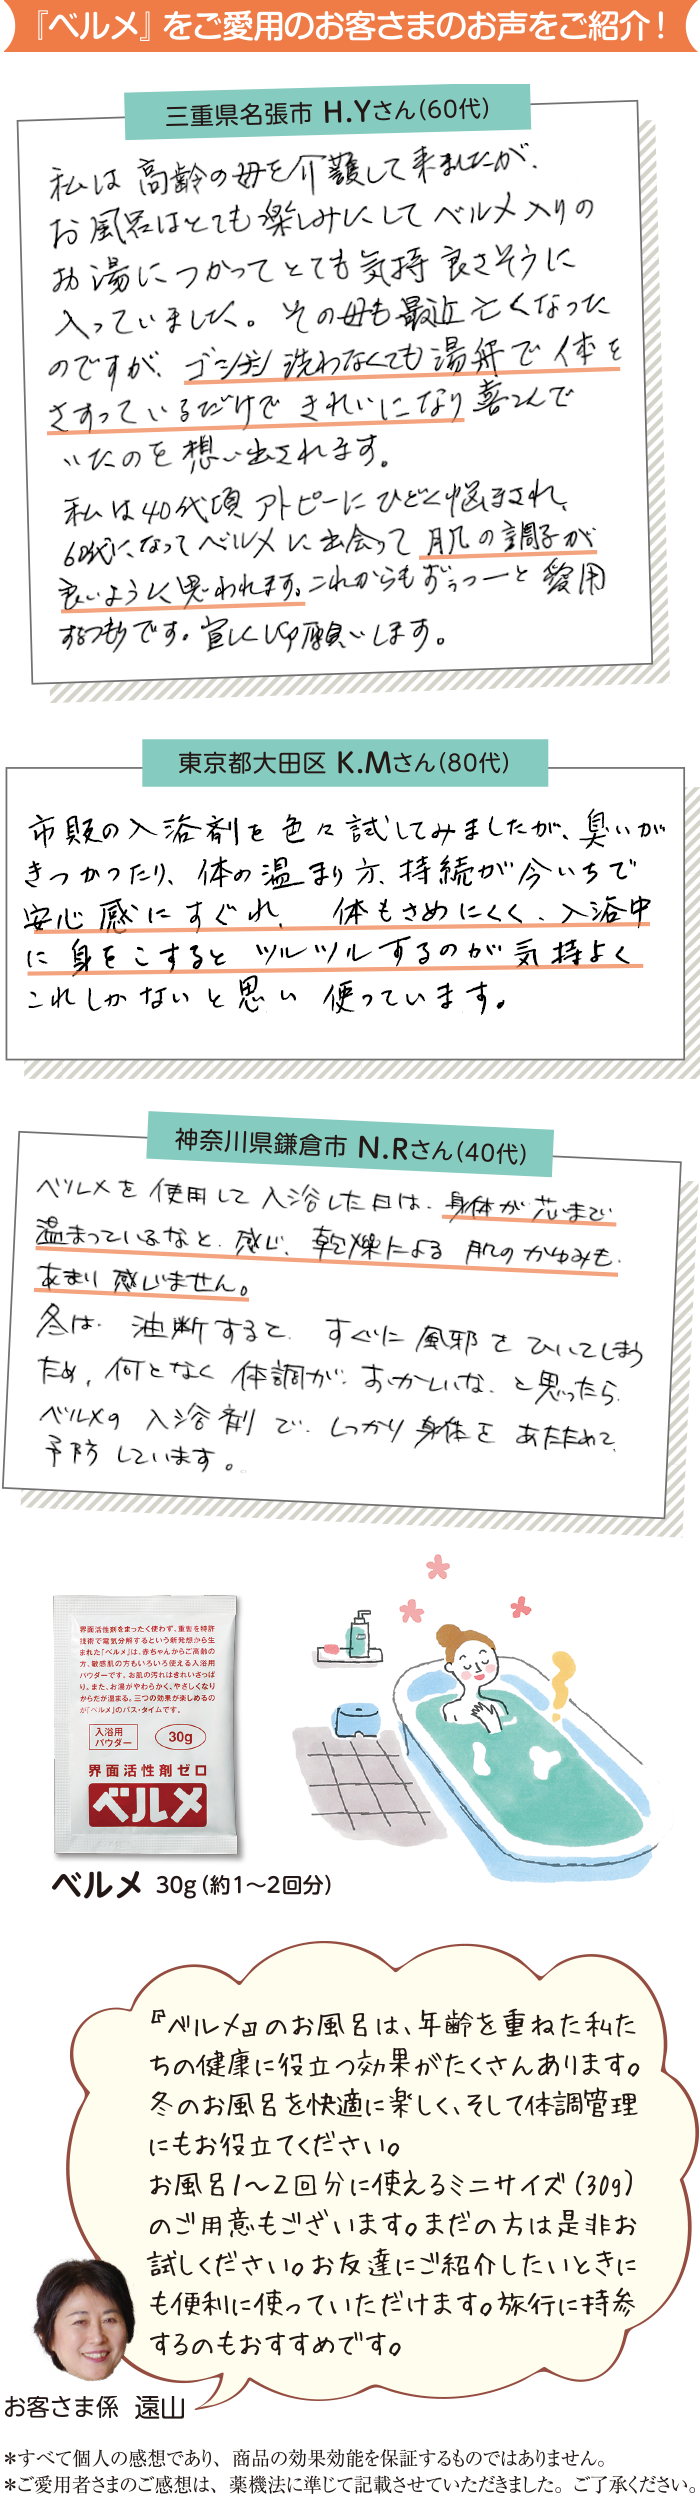 『ベルメ』をご愛用のお客さまのお声をご紹介！
三重県名張市 H.Yさん(60代)
私は高齢の母を介護して来ましたが、
お風呂はとても楽しみにしてベルメ入りの
お湯につかってとても気持良さそうに
入っていました。その母も最近亡くなった
のですが、ゴシゴシ洗わなくても湯舟で体を
さすっているだけできれいになり喜こんで
いたのを想い出されます。
私は40代頃アトピーにひどく悩まされ、
60代になってベルメに出会って肌の調子が
良いように思われます。これからもずぅっーと愛用
するつもりです。宜しく御願いします。
東京都大田区 K.Mさん(80代)
市販の入浴剤を色々試してみましたが、臭いが
きつかったり、体の温まり方、持続が今いちで
安心感にすぐれ、体もさめにくく、入浴中
に身をこするとツルツルするのが気持よく
これしかないと思い使っています。
神奈川県鎌倉市 N.Rさん(40代)
ベルメを使用して入浴した日は、身体が芯まで
温まっているなと感じ、乾燥による肌のかゆみも
あまり感じません。
冬は、油断すると、すぐに風邪をひいてしまう
ため、何となく体調がおかしいな、と思ったら、
ベルメの入浴剤で、しっかり身体をあたためて、
予防しています。
界面活性剤をまったく使わず、重曹を特許
技術で電気分解するという新発想から生
まれた「ベルメ」は、赤ちゃんからご高齢の
方、敏感肌の方もいろいろ使える入浴用
パウダーです。お肌の汚れはきれいさっぱ
り。また、お湯がやわらかく、やさしくなり
からだが温まる。三つの効果が楽しめるの
が「ベルメ」のバス・タイムです。
入浴用
パウダー
30g
界面活性剤ゼロ
ベルメ
ベルメ 30g(約1〜2回分)
『ベルメ』のお風呂は、年齢を重ねた私た
ちの健康に役立つ効果がたくさんあります。
冬のお風呂を快適に楽しく、そして体調管理
にもお役立てください。
お風呂1〜2回分に使えるミニサイズ(30g)
のご用意もございます。まだの方は是非お
試しください。お友達にご紹介したいときに
も便利に使っていただけます。旅行に持参
するのもおすすめです。
お客さま係 遠山
＊すべて個人の感想であり、商品の効果効能を保証するものではありません。
＊ご愛用者さまのご感想は、薬機法に準じて記載させていただきました。ご了承ください。